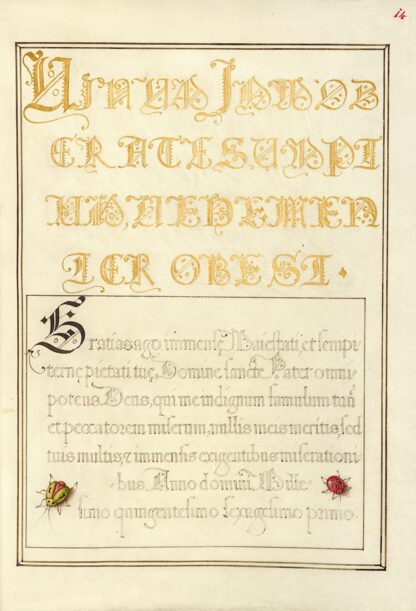 14
Usus vini immod
eratε sumpti
um, vehemen
ter obest.
Gratias ago immense Maiestati, et sempi
terne pietati tue, Domine sancte Pater omni
potens Deus, qui me indignum famulum tuū
et peccatorem miserum, nullis meis meritis, sed
tuis multis, & immensis exigentibus miserationi
bus. Anno domini, Mille
simo quingentesimo sexagesimo primo.